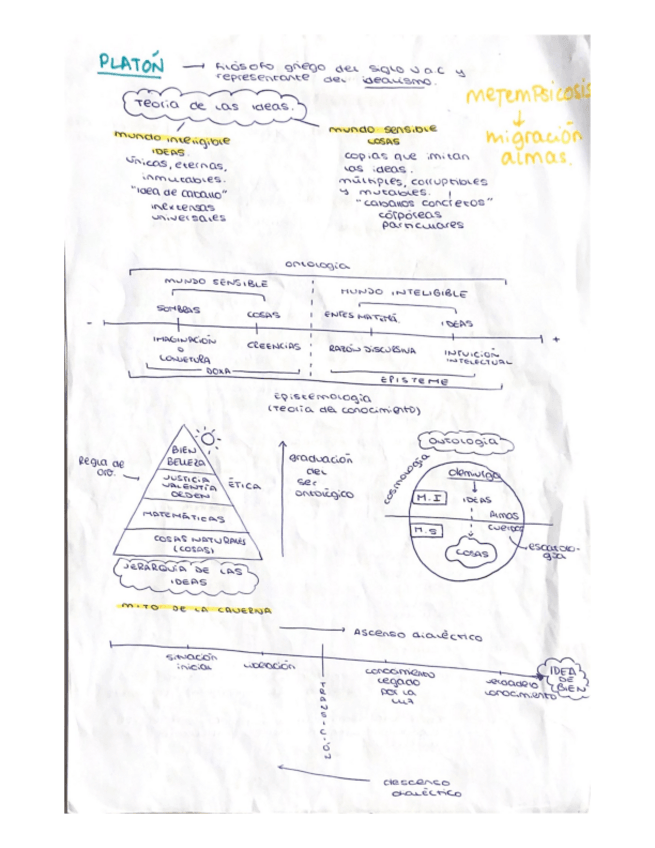 PLATÓN → filósofo griego del siglo V a.C y
representante del idealismo.
Teoria de las ideas.
metempsicosis
↓
migración
almas.
mundo inteligible
IDEAS.
únicas, eternas,
inmutables.
"idea de caballo"
inextensas
universales
mundo sensible
COSAS
copias que imitan
las ideas.
múltiples, corruptibles
y mutables.
"caballos concretos"
corpóreas
particulares
ontologia
MUNDO SENSIBLE
MUNDO INTELIGIBLE
SOMBRAS
COSAS
ENTES MATEMÁ.
IDEAS
- +
IMAGINACIÓN
o
CONJETURA
CREENCIAS
RAZÓN DISCURSIVA
INTUICIÓN
INTELECTUAL
DOXA
EPISTEME
Epistemología
(Teoria del conocimiento)
Regla de
oro.
BIEN
BELLEZA
JUSTICIA
VALENTÍA
ORDEN
ÉTICA
MATEMÁTICAS
COSAS NATURALES
(COSAS)
JERARQUÍA DE LAS
IDEAS
graduación
del
ser
ontológico
ontología
cosmología
demiurgo
M.I
IDEAS
ALMAS
M.S
CUERPOS
COSAS
escatolo-
gía
MITO DE LA CAVERNA
→ Ascenso dialéctico
situación
inicial
liberación
TRANSICIÓN
conocimiento
cegado
por la
luz
verdadero
conocimiento
IDEA
DE
BIEN
descenso
dialéctico